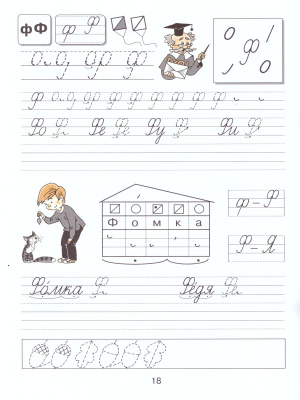 фФ ф Ф Ф
о. о, ф ф
ф о о, ф ф ф ф ф ф ф
Фо Ф Фе Ф Фу Ф Фи Ф
Ф о м к а
ф – Ф
Ф – Я
Фо́мка Ф Фе́дя Ф
18